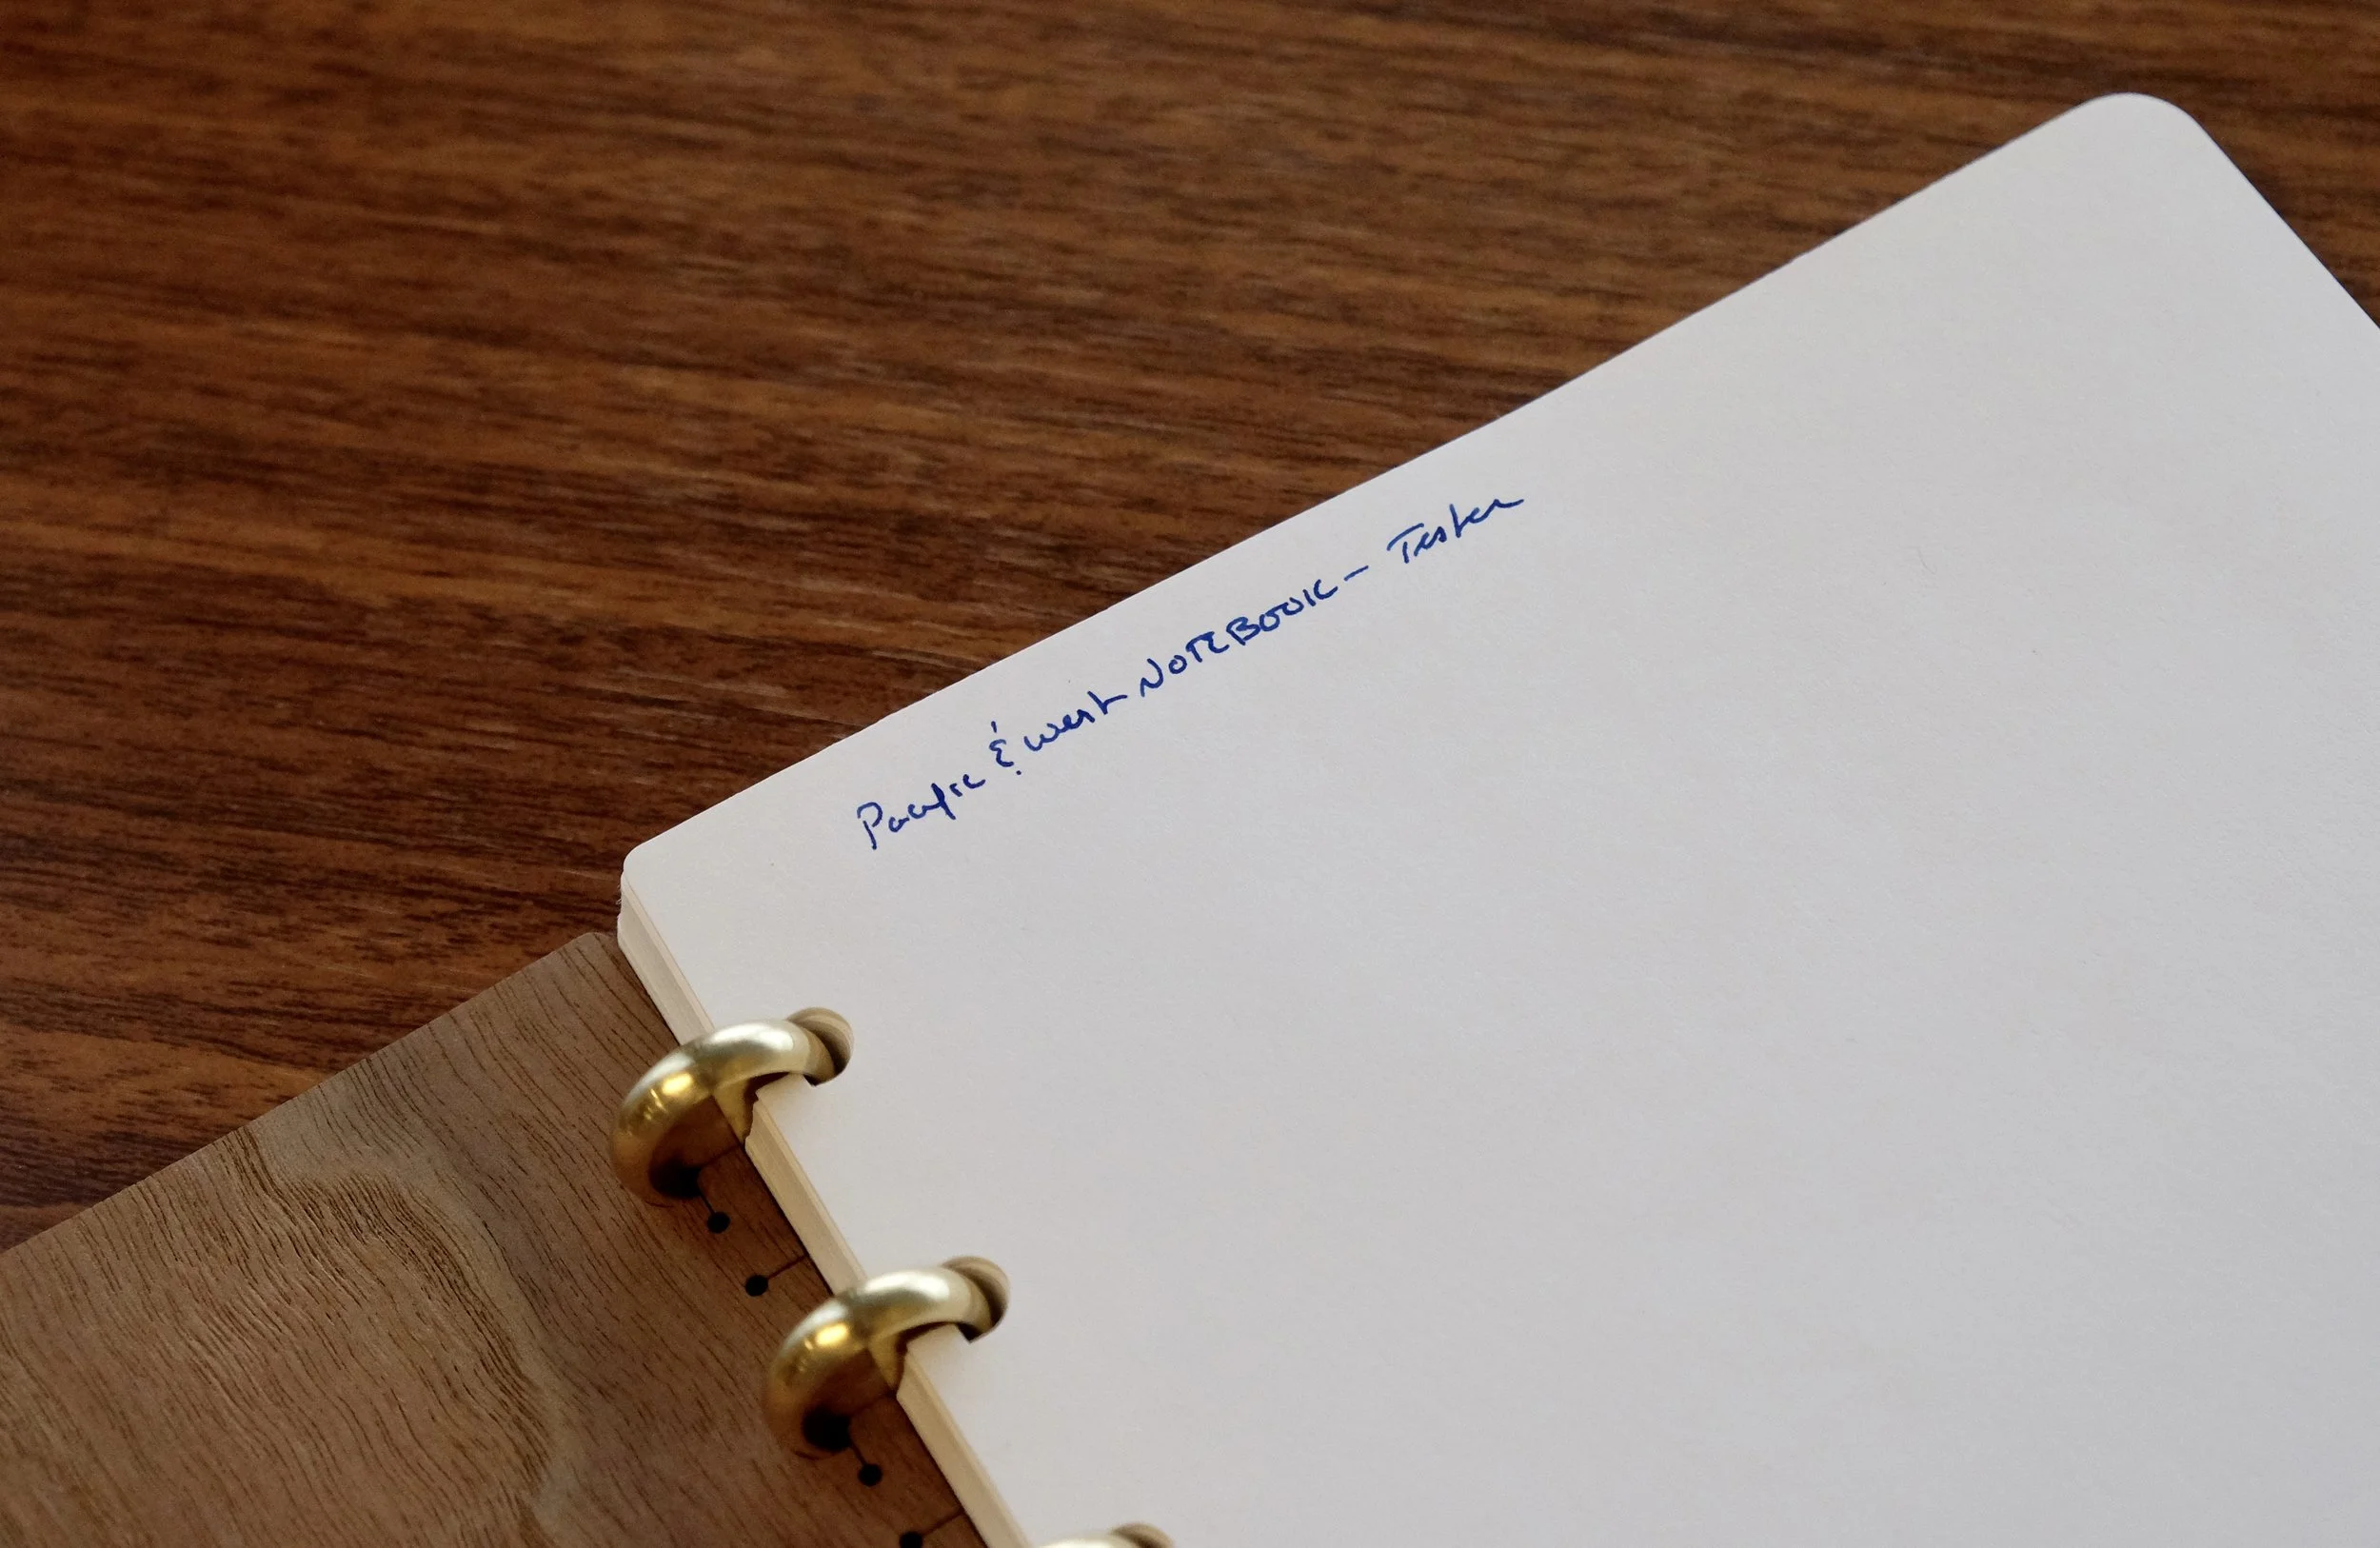 Pacific & West NOTEBOOK - Tester